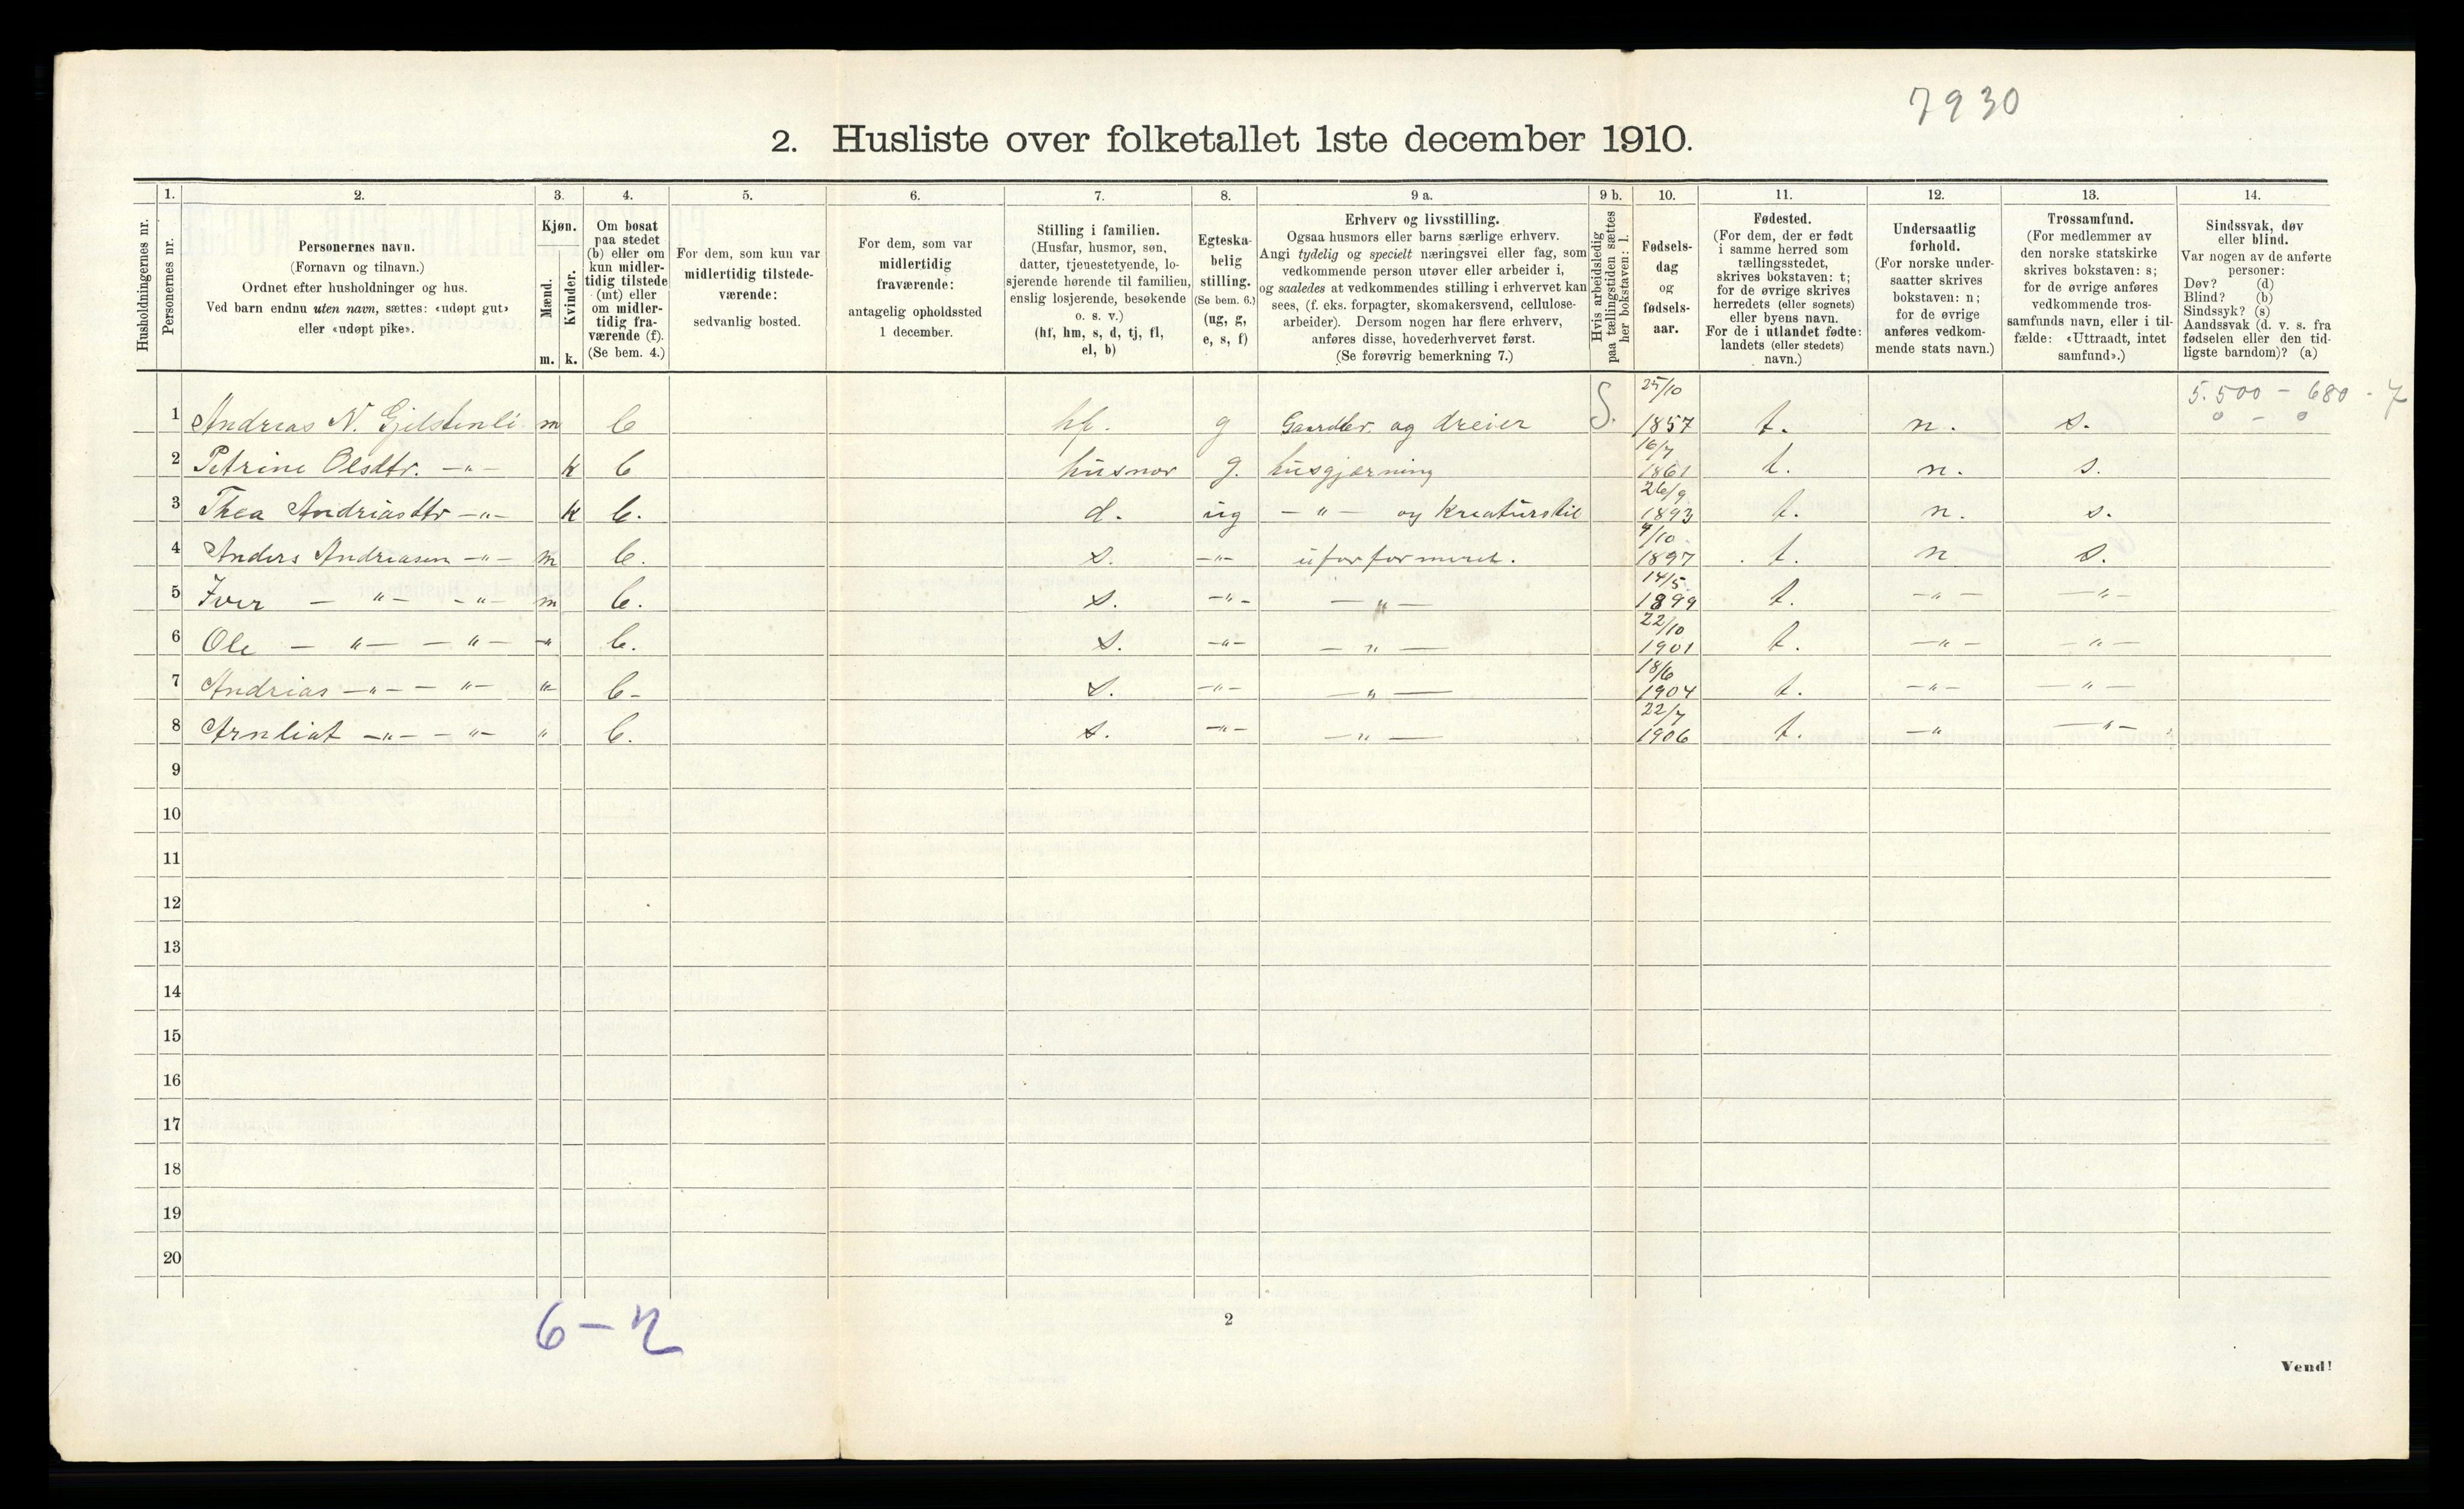 7930
2. Husliste over folketallet 1ste december 1910.
Husholdningernes nr.
1.
Personernes nr.
2.
Personernes navn.
(Fornavn og tilnavn.)
Ordnet efter husholdninger og hus.
Ved barn endnu uten navn, sættes: «udøpt gut»
eller «udøpt pike».
3.
Kjøn.
Mænd.
Kvinder.
m. k.
4.
Om bosat
paa stedet
(b) eller om
kun midler-
tidig tilstede
(mt) eller
om midler-
tidig fra-
værende (f).
(Se bem. 4.)
5.
For dem, som kun var
midlertidig tilstede-
værende:
sedvanlig bosted.
6.
For dem, som var
midlertidig
fraværende:
antagelig opholdssted
1 december.
7.
Stilling i familien.
(Husfar, husmor, søn,
datter, tjenestetyende, lo-
sjerende hørende til familien,
enslig losjerende, besøkende
o. s. v.)
(hf, hm, s, d, tj, fl,
el, b)
8.
Egteska-
belig
stilling.
(Se bem. 6.)
(ug, g,
e, s, f)
9 a.
Erhverv og livsstilling.
Ogsaa husmors eller barns særlige erhverv.
Angi tydelig og specielt næringsvei eller fag, som
vedkommende person utøver eller arbeider i,
og saaledes at vedkommendes stilling i erhvervet kan
sees, (f. eks. forpagter, skomakersvend, cellulose-
arbeider). Dersom nogen har flere erhverv,
anføres disse, hovederhvervet først.
(Se forøvrig bemerkning 7.)
9 b.
Hvis arbeidsledig
paa tællingstiden sættes
her bokstaven: l.
10.
Fødsels-
dag
og
fødsels-
aar.
11.
Fødested.
(For dem, der er født
i samme herred som
tællingsstedet,
skrives bokstaven: t;
for de øvrige skrives
herredets (eller sognets)
eller byens navn.
For de i utlandet fødte:
landets (eller stedets)
navn.)
12.
Undersaatlig
forhold.
(For norske under-
saatter skrives
bokstaven: n;
for de øvrige
anføres vedkom-
mende stats navn.)
13.
Trossamfund.
(For medlemmer av
den norske statskirke
skrives bokstaven: s;
for de øvrige anføres
vedkommende tros-
samfunds navn, eller i til-
fælde: «Uttraadt, intet
samfund».)
14.
Sindssvak, døv
eller blind.
Var nogen av de anførte
personer:
Døv? (d)
Blind? (b)
Sindssyk? (s)
Aandssvak (d. v. s. fra
fødselen eller den tid-
ligste barndom)? (a)
5.500 - 680 - 7
0 - 0
1 Andreas N. Gjelstenli m b hf. g Gaardbr. og dreier S. 25/10 1857 t. n. s.
2 Petrine Olsdtr. -"- k b husmor g. husgjærning 16/7 1861 t. n. s.
3 Thea Andriasdtr -"- k b. d. ug - " - og Kreaturstil 26/9 1893 t. n. s.
4 Anders Andreasen -"- m b. s. -"- uforformuet. 4/10 1897 t. n s.
5 Iver - "- - "- m b. s. -"- - " - 14/5 1899 t. - " - - " -
6 Ole - "- - "- " b. s. -"- - " - 22/10 1901 t. - " - - " -
7 Andrias -"- - "- " b- s. -"- - " - 18/6 1904 t. - " - - " -
8 Arnliat -"- - "- " b. s. -"- - " - 22/7 1906 t. - " - " -
9
10
11
12
13
14
15
16
17
18
19
20
6-2
2
Vend!